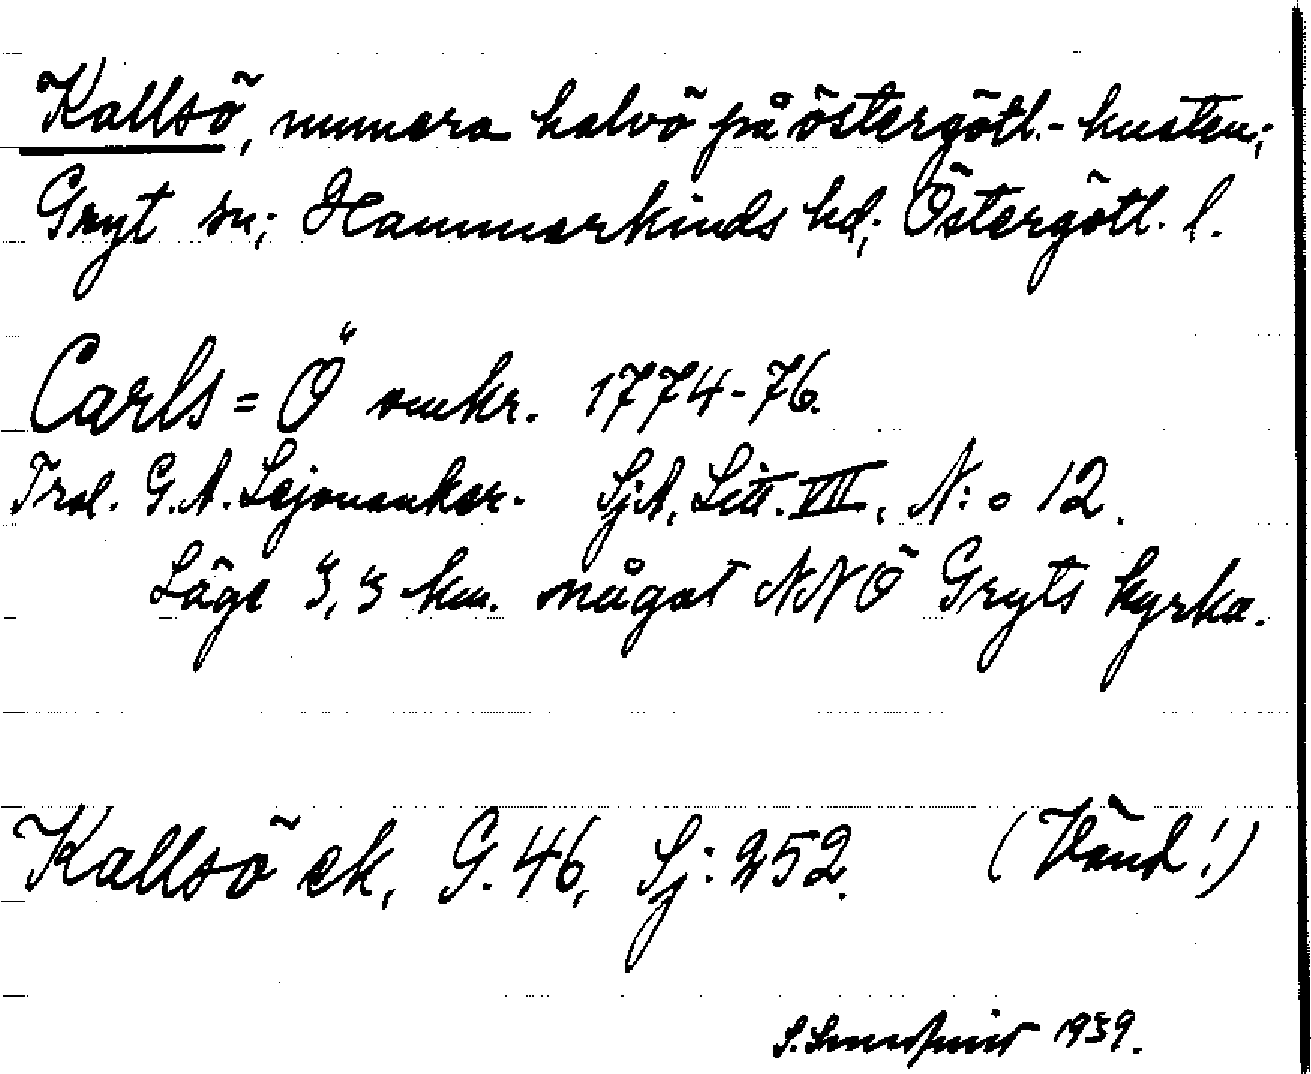 Kallsö, numera halvö på östergötl.-kusten;
Gryt sn; Hammarkinds hd; Östergötl. l.
Carls=Ö omkr. 1774-76.
Trol. G.A. Lejonanker. SjA, Litt. VII, N:o 12.
Läge 3,3 km. något NNÖ Gryts kyrka.
Kallsö ek, G. 46, Sj: 252. (Vänd!)
S. 1939.